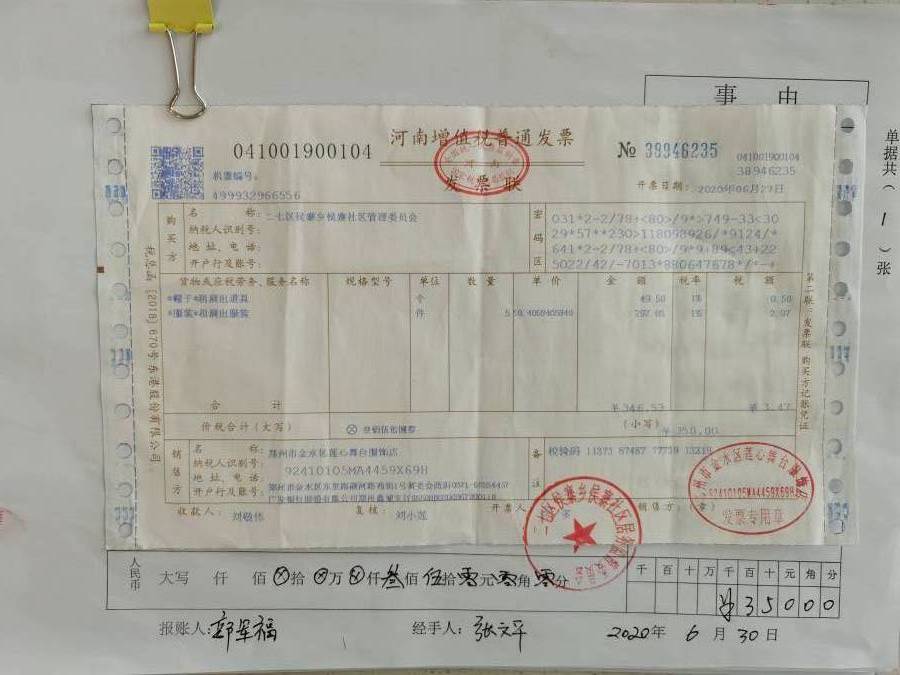 事 由
单据共（1）张
河南增值税普通发票
发票联
041001900104
№ 38946235
041001900104
38946235
机器编号：
499932966556
开票日期：2020年06月27日
购买方
名 称：二七区侯寨乡侯寨社区管理委员会
纳税人识别号：
地 址、电 话：
开户行及账号：
密码区
031*2-2/78+<80>/9*>749-33<30
29*57**230>118098926/*9124/*
641*2-2/78+<80>/9*9+89<43+22
5022/42/-7013*880647678*/*-+
货物或应税劳务、服务名称 规格型号 单位 数 量 单 价 金 额 税率 税 额
*帽子*租演出道具 个 49.50 1% 0.50
*服装*租演出服装 件 297.03 1% 2.97
合 计 ￥346.53 ￥3.47
价税合计（大写） ⊗ 叁佰伍拾圆整 （小写）￥350.00
销售方
名 称：郑州市金水区莲心舞台服饰店
纳税人识别号：92410105MA4459X69H
地 址、电 话：
开户行及账号：
备注
校验码 11373 87487 77759
收款人：刘敬伟 复核：刘小莲 开票人： 销售方：（章）
税总函〔2018〕670号东港股份有限公司
第二联：发票联 购买方记账凭证
郑州市金水区莲心舞台服饰店
92410105MA4459X69H
发票专用章
人民币
大写 仟 佰⊗拾⊗万⊗仟叁佰伍拾零元零角零分
千 百 十 万 千 百 十 元 角 分
￥35000
报账人：郭军福 经手人：张文平 2020年 6月30日